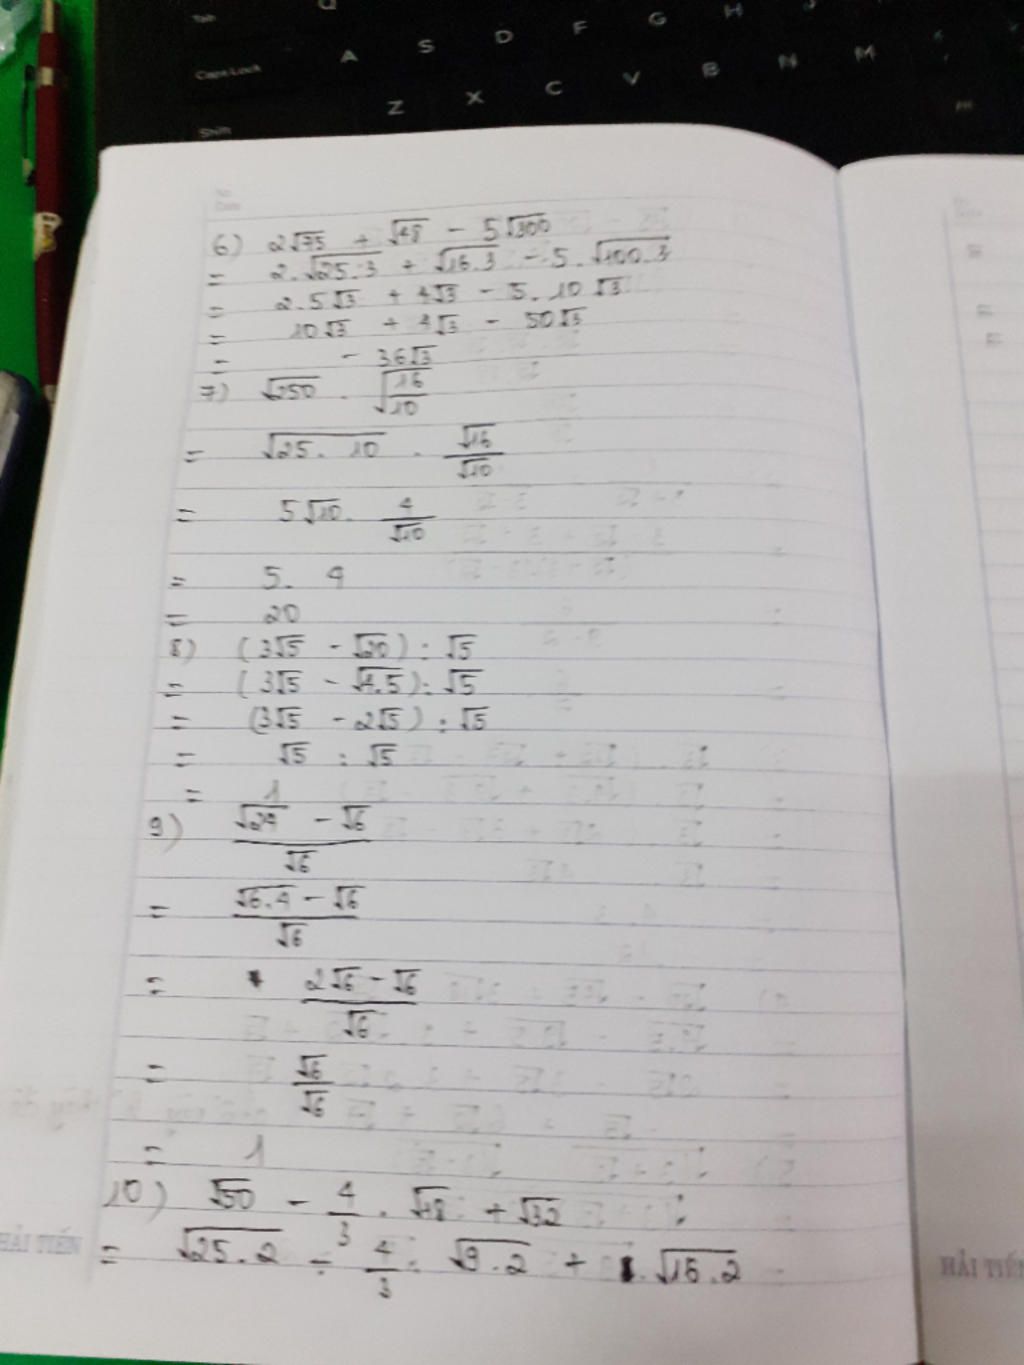 Tab
Q
G
H
Caps Lock
A
S
D
F
Z
X
C
V
B
N
M
Shift
No.
Date
6) 2√75 + √48 - 5√300
= 2.√25.3 + √16.3 - 5.√100.3
= 2.5√3 + 4√3 - 5.10√3
= 10√3 + 4√3 - 50√3
= - 36√3
7) √250 . √16/10
= √25.10 . √16/√10
= 5√10 . 4/√10
= 5. 4
= 20
8) (3√5 - √20) : √5
= (3√5 - √4.5) : √5
= (3√5 - 2√5) : √5
= √5 : √5
= 1
9) √24 - √6 / √6
= √6.4 - √6 / √6
= 2√6 - √6 / √6
= √6/√6
= 1
10) √50 - 4/3 . √18 + √32
= √25.2 - 4/3 . √9.2 + √16.2
HẢI TIẾN
HẢI TIẾN